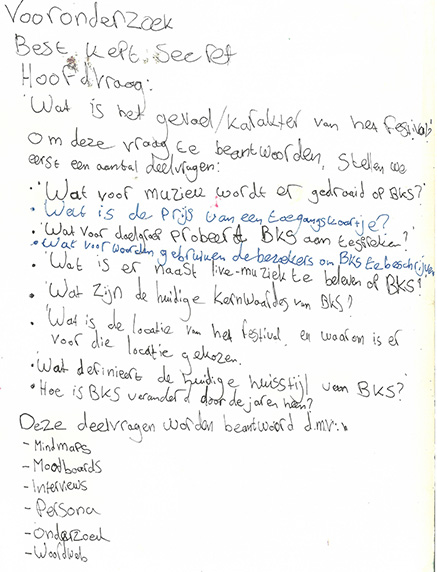 Vooronderzoek
Best Kept Secret
Hoofdvraag:
'Wat is het gevoel/karakter van het festival?'
Om deze vraag te beantwoorden, stellen we
eerst een aantal deelvragen:
• 'Wat voor muziek wordt er gedraaid op BKS?'
• Wat is de prijs van een toegangskaartje?
• 'Wat voor doelgroep probeert BKS aan te spreken?'
• Wat voor woorden gebruiken de bezoekers om BKS te beschrijven
• 'Wat is er naast live-muziek te beleven op BKS?'
• 'Wat zijn de huidige kernwaardes van BKS?
• 'Wat is de locatie van het festival, en waarom is er
voor die locatie gekozen.
• 'Wat definieert de huidige huisstijl van BKS?'
• Hoe is BKS veranderd door de jaren heen?
Deze deelvragen worden beantwoord d.m.v.:
- Mindmaps
- Moodboards
- Interviews
- Persona
- Onderzoek
- Woordweb